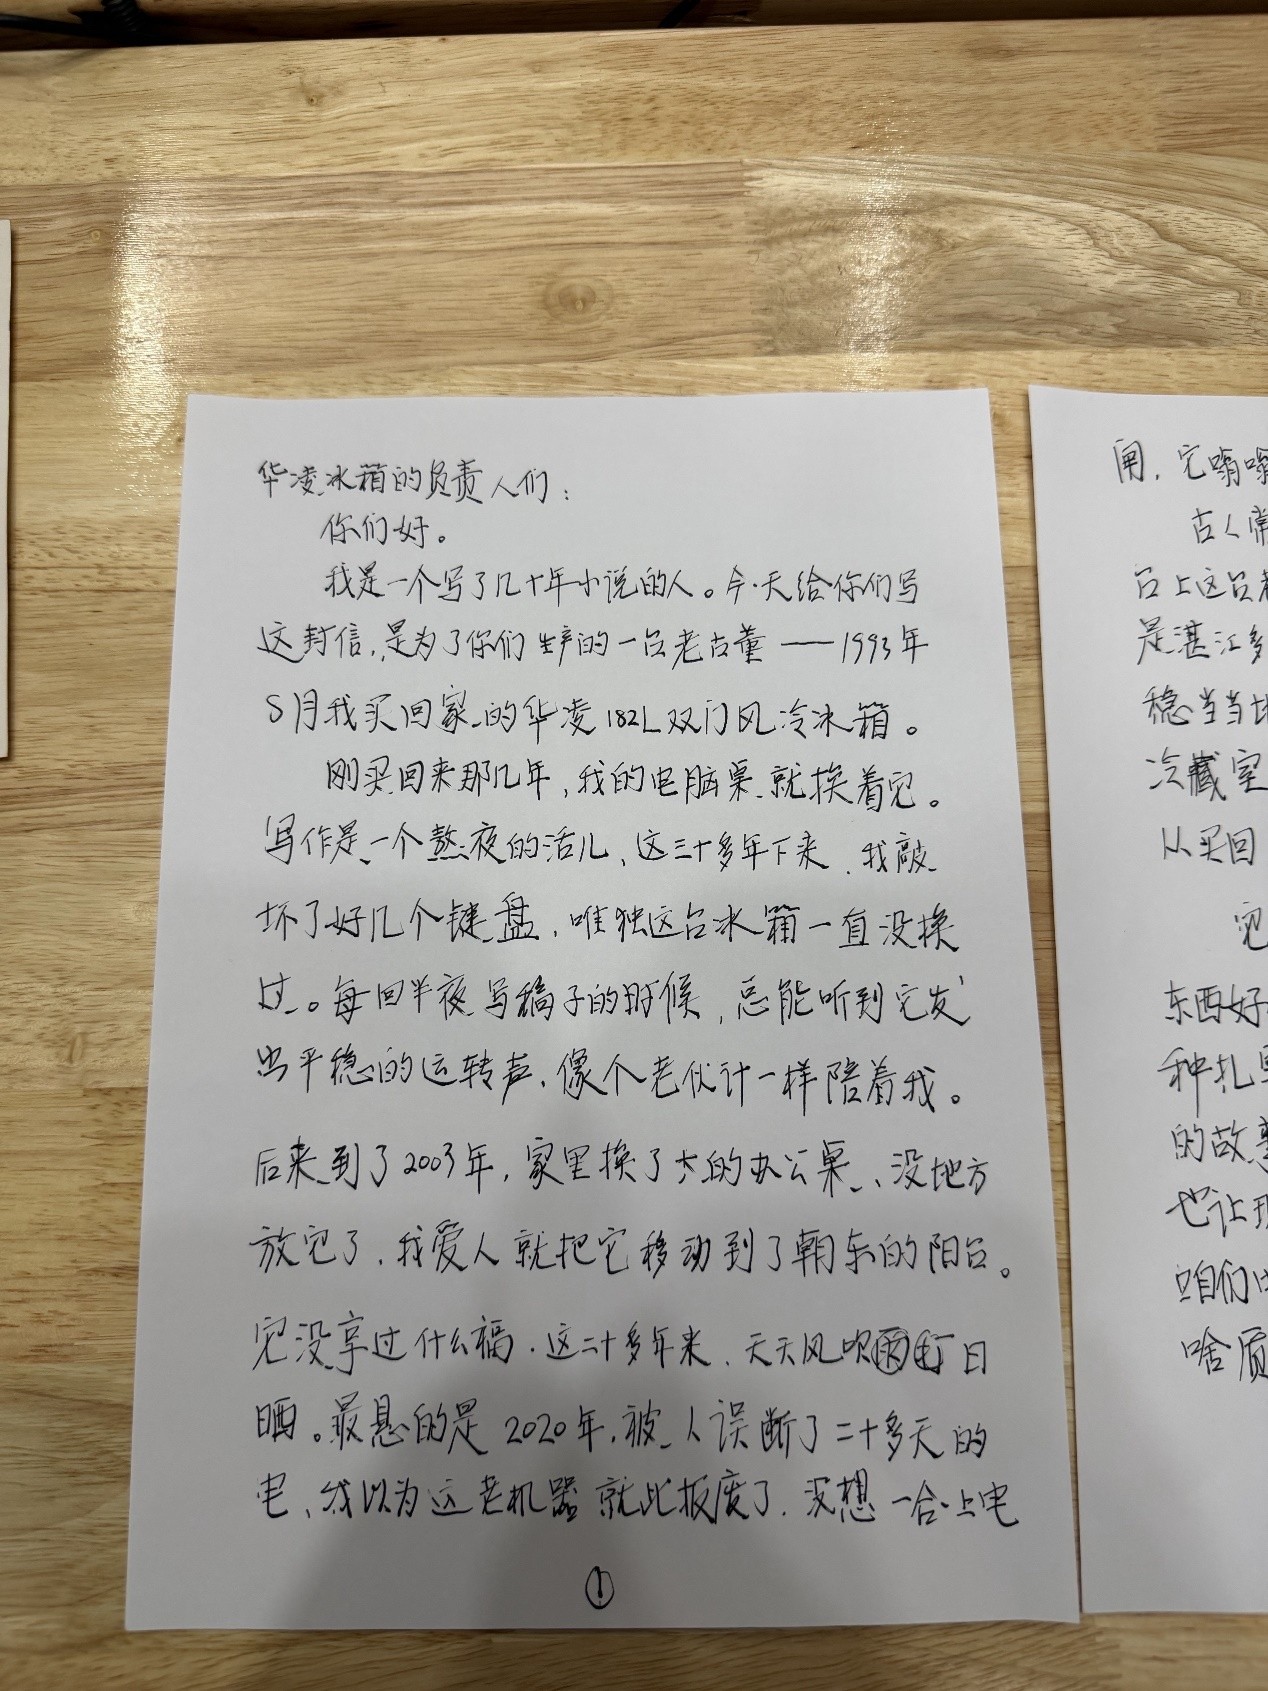 华凌冰箱的负责人们：
你们好。
我是一个写了几十年小说的人。今天给你们写
这封信，是为了你们生产的一台老古董——1993年
5月我买回家的华凌182L双门风冷冰箱。
刚买回来那几年，我的电脑桌就挨着它。
写作是一个熬夜的活儿，这三十多年下来，我敲
坏了好几个键盘，唯独这台冰箱一直没换
过。每回半夜写稿子的时候，总能听到它发
出平稳的运转声，像个老伙计一样陪着我。
后来到了2003年，家里换了大的办公桌，没地方
放它了，我爱人就把它移动到了朝东的阳台。
它没享过什么福，这二十多年来，天天风吹雨打日
晒。最悬的是2020年，被人误断了二十多天的
电，我以为这老机器就此报废了，没想一合上电
①
闸，它嗡嗡
古人常
台上这台
是湛江多
稳当当地
冷藏室
从买回
它
东西好
种扎
的故事
也让
咱们
啥质